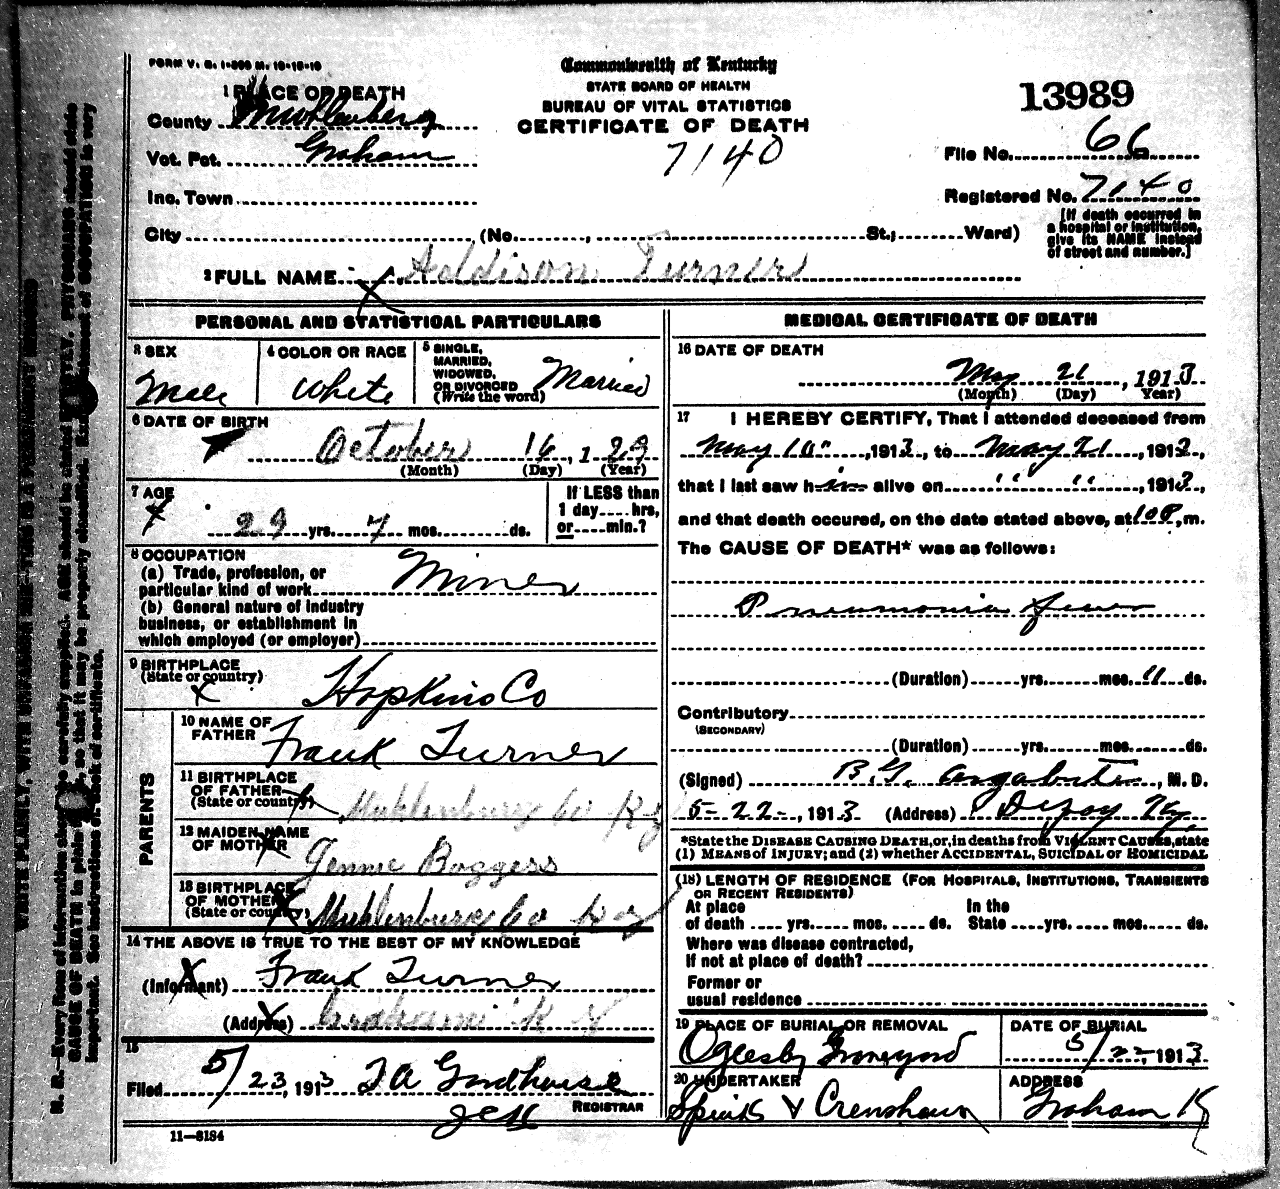 FORM V. S. 1-200 M. 10-15-10
Commonwealth of Kentucky
STATE BOARD OF HEALTH
BUREAU OF VITAL STATISTICS
CERTIFICATE OF DEATH
7140
13989
1 PLACE OF DEATH
County Muhlenberg
Vot. Pct. Graham
Inc. Town
City (No. , St.; Ward)
File No. 66
Registered No. 7140
[If death occurred in
a hospital or institution,
give its NAME instead
of street and number.]
2 FULL NAME Addison Turner
PERSONAL AND STATISTICAL PARTICULARS
3 SEX
Male
4 COLOR OR RACE
White
5 SINGLE,
MARRIED,
WIDOWED,
OR DIVORCED
(Write the word)
Married
6 DATE OF BIRTH
October 16, 1 29
(Month) (Day) (Year)
7 AGE
29 yrs. 7 mos. ds.
If LESS than
1 day.... hrs,
or.... min.?
8 OCCUPATION
(a) Trade, profession, or
particular kind of work Miner
(b) General nature of industry
business, or establishment in
which employed (or employer)
9 BIRTHPLACE
(State or country)
Hopkins Co
PARENTS
10 NAME OF
FATHER
Frank Turner
11 BIRTHPLACE
OF FATHER
(State or country)
Muhlenburg Co Ky
12 MAIDEN NAME
OF MOTHER
Jennie Boggess
13 BIRTHPLACE
OF MOTHER
(State or country)
Muhlenburg Co Ky
14 THE ABOVE IS TRUE TO THE BEST OF MY KNOWLEDGE
(Informant) Frank Turner
(Address) Graham Ky
15
Filed 5/23, 1913
REGISTRAR
11-8184
MEDICAL CERTIFICATE OF DEATH
16 DATE OF DEATH
May 21, 1913
(Month) (Day) Year)
17 I HEREBY CERTIFY, That I attended deceased from
May 10", 1913, to May 21 1913,
that I last saw him alive on " ", 1913,
and that death occured, on the date stated above, at 10 P, m.
The CAUSE OF DEATH* was as follows:
Pneumonia fever
(Duration) yrs. mos. 11 ds.
Contributory
(SECONDARY)
(Duration) yrs. mos. ds.
(Signed) B.G. Argabrite, M. D.
5-22-, 1913 (Address) Depoy Ky.
*State the DISEASE CAUSING DEATH, or, in deaths from VIOLENT CAUSES, state
(1) MEANS OF INJURY; and (2) whether ACCIDENTAL, SUICIDAL or HOMICIDAL
(18) LENGTH OF RESIDENCE (FOR HOSPITALS, INSTITUTIONS, TRANSIENTS
OR RECENT RESIDENTS)
At place In the
of death .... yrs. .... mos. .... ds. State .... yrs. .... mos. .... ds.
Where was disease contracted,
if not at place of death?
Former or
usual residence
19 PLACE OF BURIAL OR REMOVAL
Oglesby Graveyard
DATE OF BURIAL
5/22-1913
20 UNDERTAKER
& Crenshaw
ADDRESS
Graham Ky
WRITE PLAINLY, WITH UNFADING INK—THIS IS A PERMANENT RECORD
N. B.—Every item of information should be carefully supplied. AGE should be stated EXACTLY. PHYSICIANS should state
CAUSE OF DEATH in plain terms, so that it may be properly classified. Exact statement of OCCUPATION is very
important. See instructions on back of certificate.